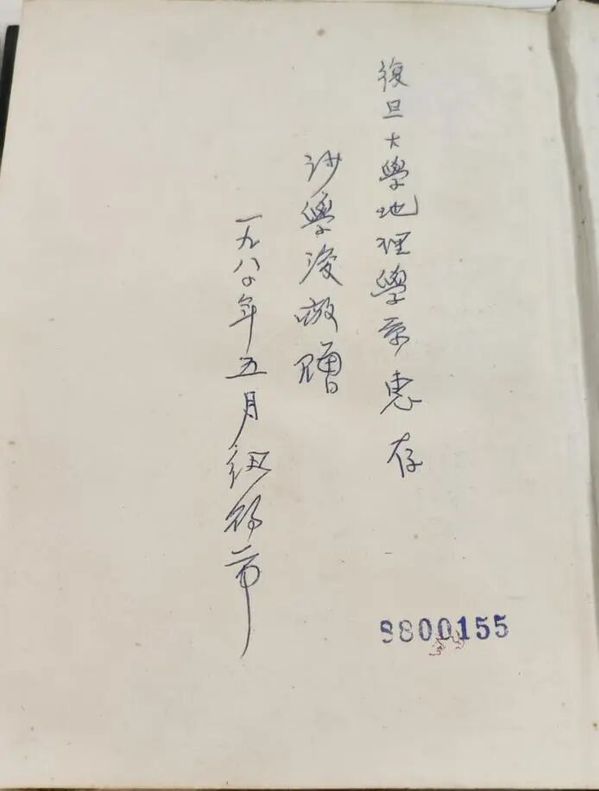 復旦大學地理學系惠存
沙學浚敬贈
一九八〇年五月紐約市
8800155